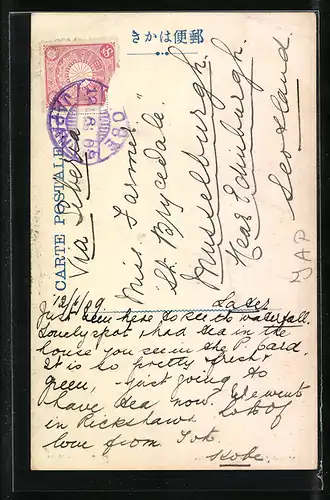 きかは便郵
CARTE POSTALE
Via Siberia
Miss Larmer
"St Brycedale."
Musselburgh.
Near Edinburgh.
Scotland.
JAP
12/6/09
Later
Just been here to see to waterfall.
Lovely spot & had tea in the
house you see in the P. Card.
It is so pretty & fresh &
green, - just going to
have tea now. We went
in Rickshaws Lots of
love from
Kobe.